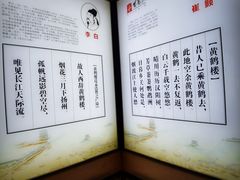 崔颢
【黄鹤楼】
昔人已乘黄鹤去,
此地空余黄鹤楼。
黄鹤一去不复返,
白云千载空悠悠。
晴川历历汉阳树,
芳草萋萋鹦鹉洲。
日暮乡关何处是,
烟波江上使人愁。
李白
【黄鹤楼送孟浩然之广陵】
故人西辞黄鹤楼,
烟花三月下扬州。
孤帆远影碧空尽,
唯见长江天际流